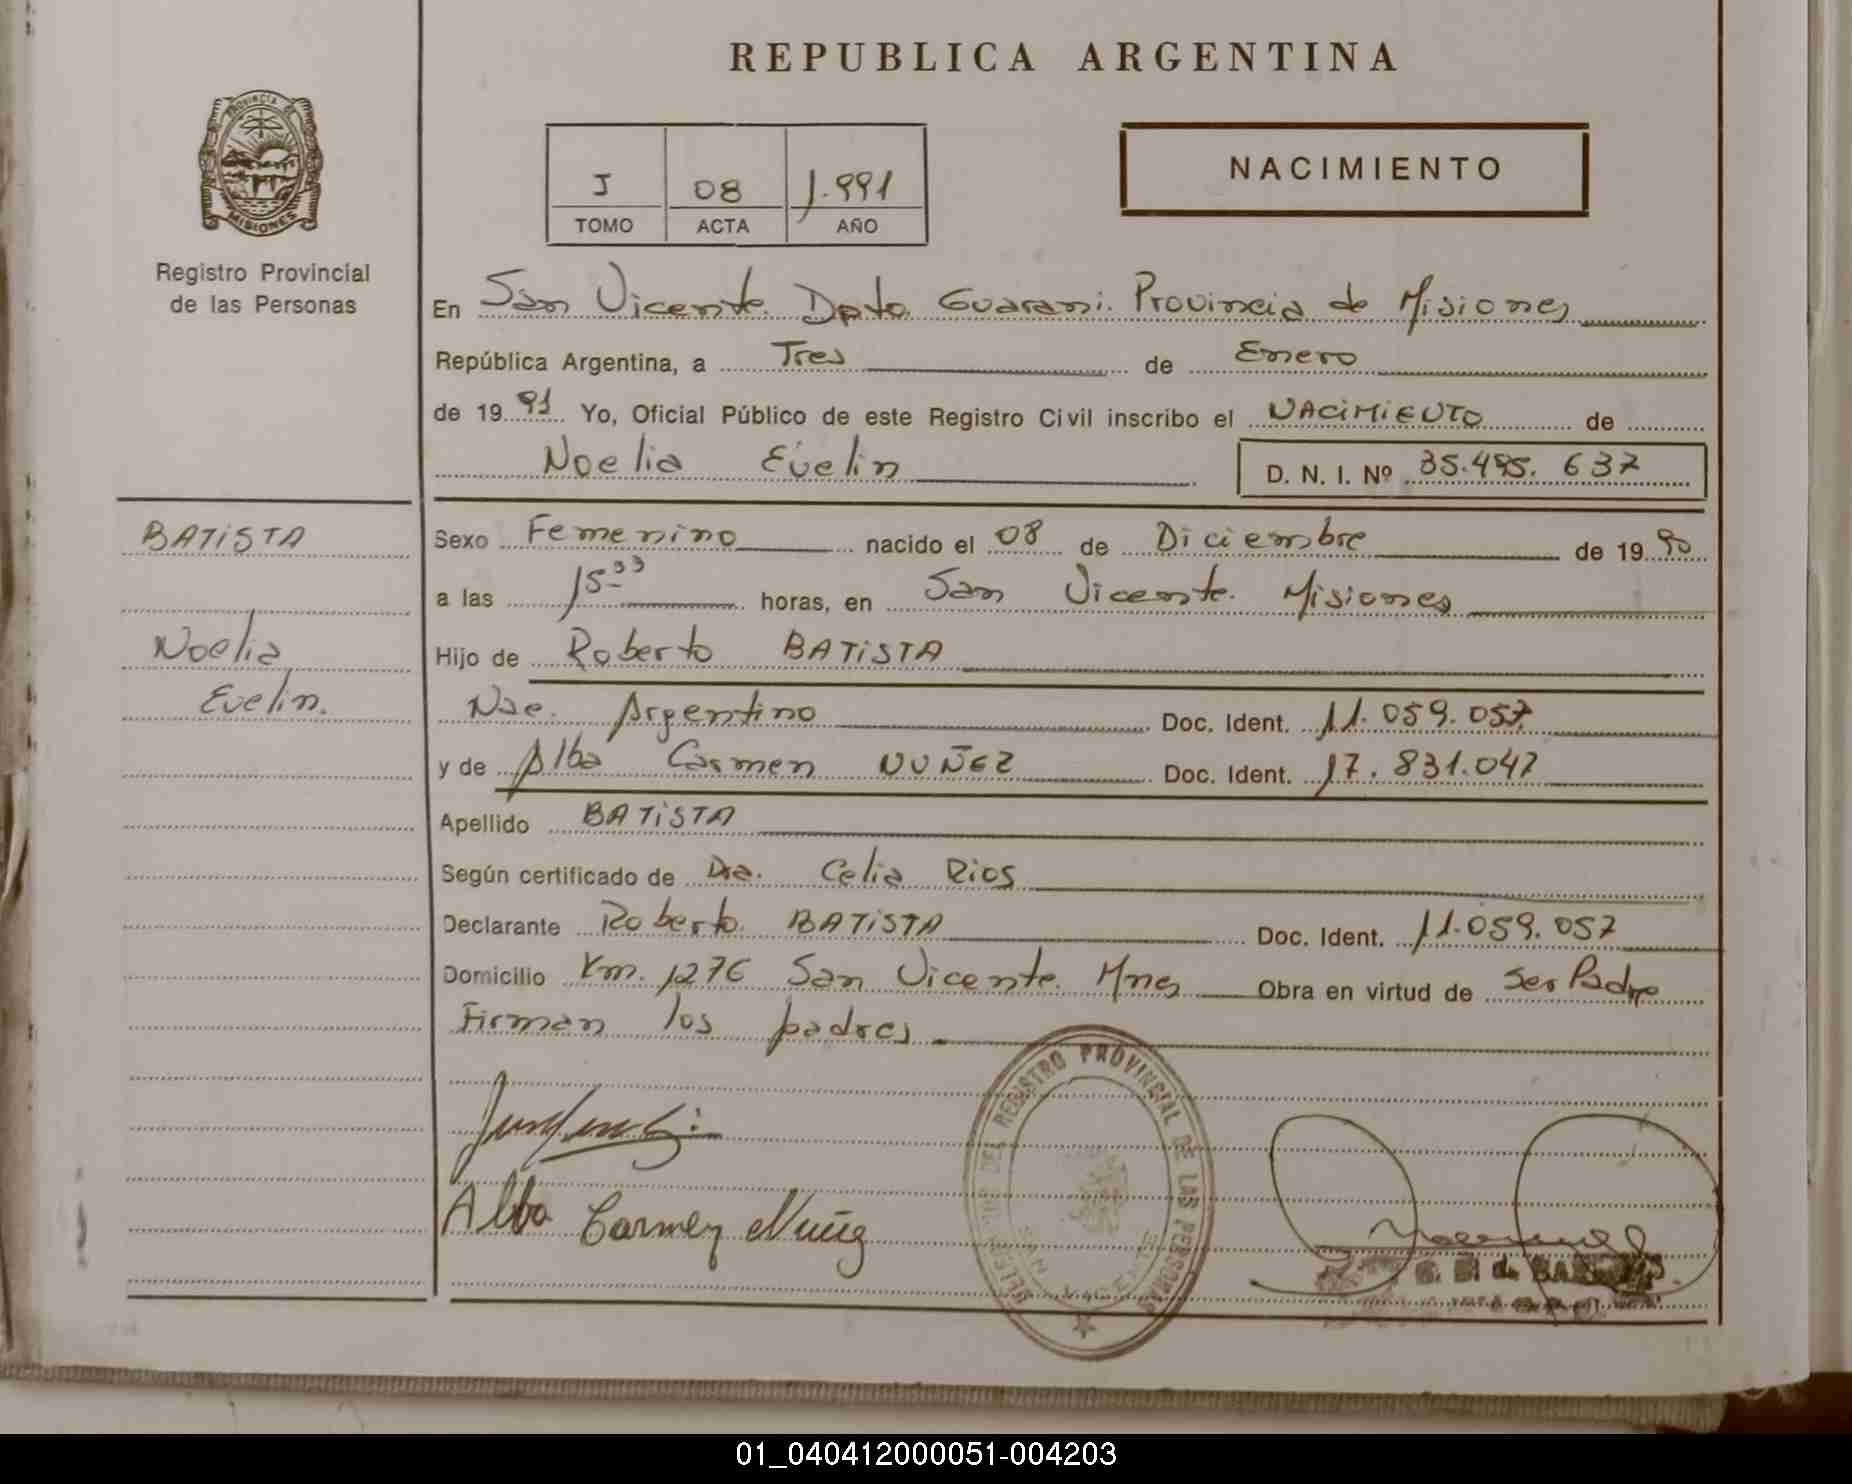 REPUBLICA ARGENTINA
PROVINCIA DE
MISIONES
Registro Provincial
de las Personas
J 08 1.991
TOMO ACTA AÑO
NACIMIENTO
En San Vicente. Dpto. Guarani. Provincia de Misiones
República Argentina, a Tres de Enero
de 19 91 Yo, Oficial Público de este Registro Civil inscribo el NACIMIENTO de
Noelia Evelin D. N. I. Nº 35.495.637
BATISTA
Noelia
Evelin.
Sexo Femenino nacido el 08 de Diciembre de 19 90
a las 15-33 horas, en San Vicente. Misiones
Hijo de Roberto BATISTA
Nac. Argentino Doc. Ident. 11.059.057
y de Alba Carmen NUÑEZ Doc. Ident. 17.831.047
Apellido BATISTA
Según certificado de Dra. Celia Rios
Declarante Roberto BATISTA Doc. Ident. 11.059.057
Domicilio Km. 1276 San Vicente. Mnes Obra en virtud de Ser Padre
Firman los padres
Alba Carmen Nuñez
DEL REGISTRO PROVINCIAL DE LAS PERSONAS
SAN VICENTE
01_040412000051-004203